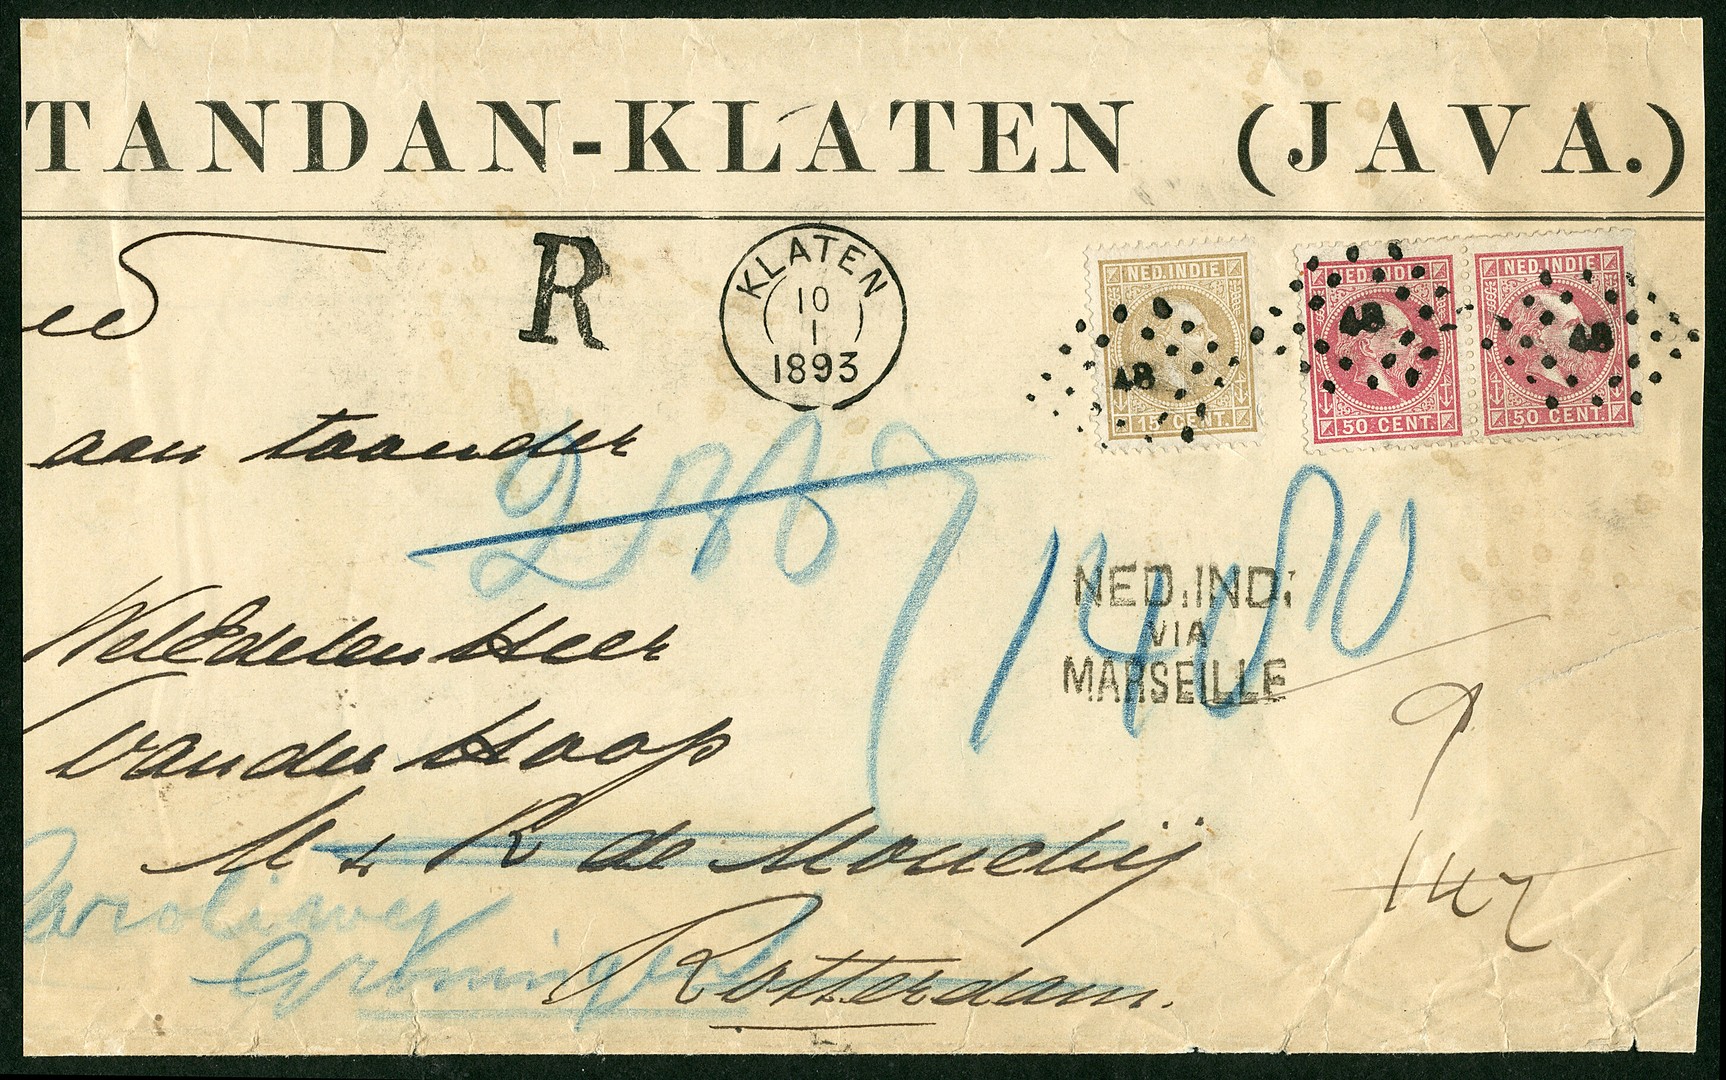 TANDAN-KLATEN (JAVA.)
R
KLATEN
10
1
1893
NED.INDIE
15 CENT.
48
NED.INDIE
50 CENT.
48
NED.INDIE
50 CENT.
48
aan toonder
NED.IND:
VIA
MARSEILLE
WelEdelen Heer
van der Hoop
M & R de Monchij
Groningen
Rotterdam.